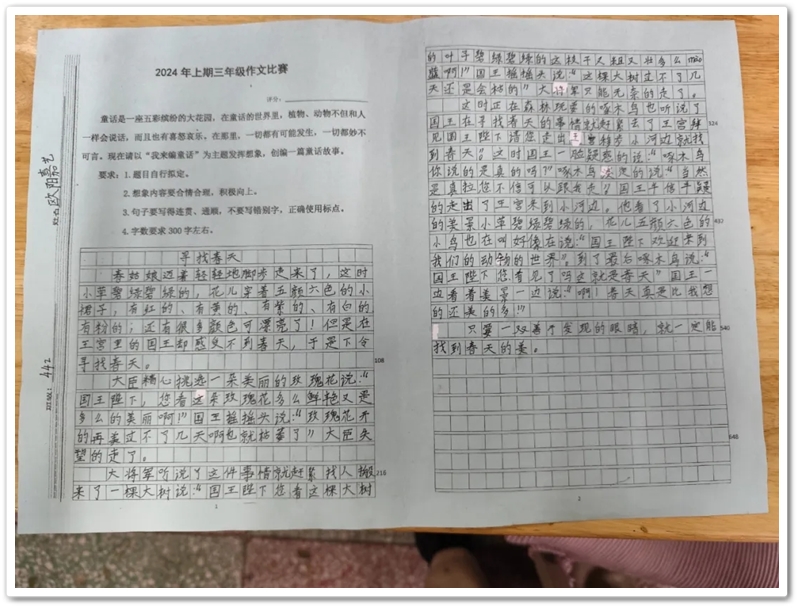 2024年上期三年级作文比赛
评分:
童话是一座五彩缤纷的大花园，在童话的世界里，植物、动物不但和人
一样会说话，而且也有喜怒哀乐，在那里，一切都有可能发生，一切都妙不
可言。现在请以“我来编童话”为主题发挥想象，创编一篇童话故事。
要求：1.题目自行拟定。
2.想象内容要合情合理，积极向上。
3.句子要写得连贯、通顺，不要写错别字，正确使用标点。
4.字数要求300字左右。
欧阳嘉艺
442
寻找春天
春姑娘迈着轻轻地脚步走来了，这时
小草碧绿碧绿的，花儿穿着五颜六色的小
裙子，有红的、有黄的、有紫的、有白的、
有粉的；还有很多颜色可漂亮了！但是在
王宫里的国王却感受不到春天，于是下令
寻找春天。
108
大臣精心挑选一朵美丽的玫瑰花说：“
国王陛下，您看这朵玫瑰花多么鲜艳又是
多么的美丽啊！”国王摇摇头说：“玫瑰花开
的再美过不了几天啊也就枯萎了”大臣失
望的走了。
大将军听说了这件事情就赶紧找人搬
216
来了一棵大树说：“国王陛下您看这棵大树
1
的叶子碧绿碧绿的这枝干又粗又壮多么
啊！”国王摇摇头说：“这棵大树过不了几
天还是会枯的”大将军只能无奈的走了。
这时正在森林现里的啄木鸟也听说了
国王在寻找春天的事情就赶紧去了王宫拜
324
见国王陛下请您走出王宫小河边就找
到春天。这时国王一脸疑惑的说：“啄木鸟
你说的是真的吗？”啄木鸟坚定的说：“当然
是真拉您不信可以跟我去”国王半信半疑
的走出了王宫来到小河边。他看了小河边
432
的美景小草碧绿碧绿的，花儿五颜六色的
小鸟也在叫好像在说：“国王陛下欢迎来到
我们的动物的世界”。到了最后啄木鸟说：“
国王陛下您看见了吗这就是春天”国王一
边看看美景一边说：“啊！春天真是比我想
的还美的多！”
只要一双善于发现的眼睛，就一定能
540
找到春天的美。
648
2